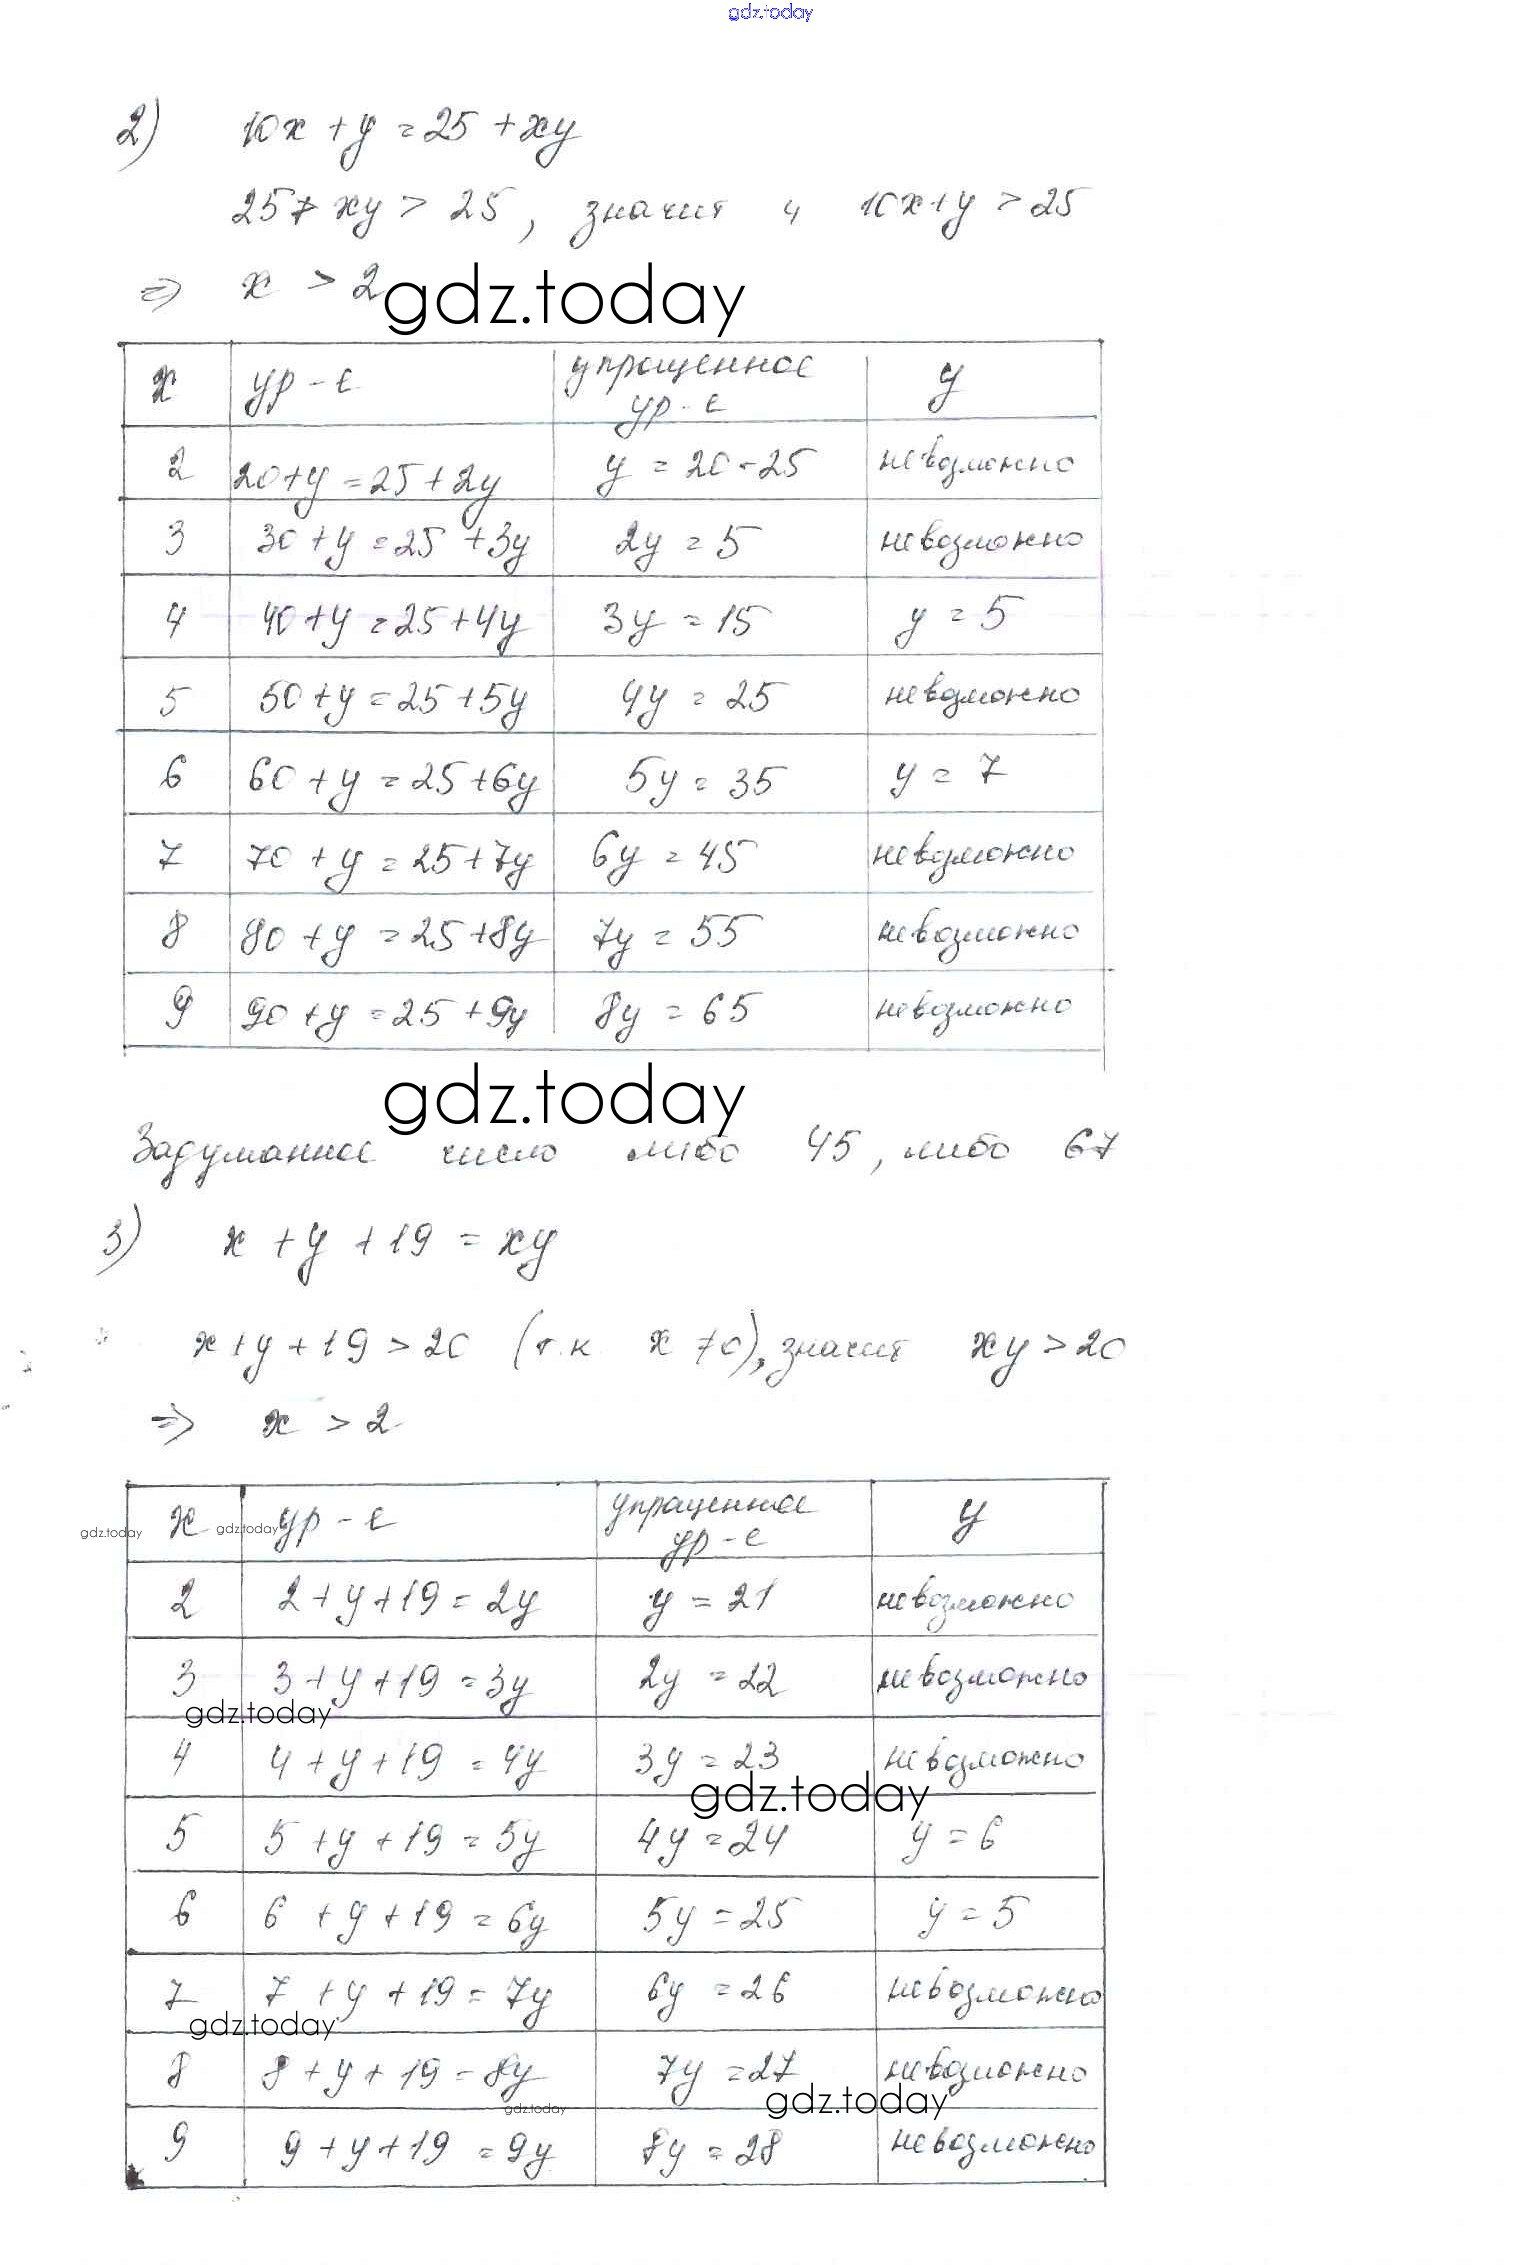 gdz.today
2) 10x + y = 25 + xy
25 + xy > 25, значит и 10x+y > 25
⇒ x > 2
gdz.today
x ур-е упрощенное ур-е y
2 20+y=25+2y y = 20-25 невозможно
3 30+y=25+3y 2y = 5 невозможно
4 40+y=25+4y 3y = 15 y = 5
5 50+y=25+5y 4y = 25 невозможно
6 60+y=25+6y 5y = 35 y = 7
7 70+y=25+7y 6y = 45 невозможно
8 80+y=25+8y 7y = 55 невозможно
9 90+y=25+9y 8y = 65 невозможно
gdz.today
Задуманное число либо 45, либо 67
3) x + y + 19 = xy
x+y+19 > 20 (т.к. x ≠ 0), значит xy > 20
⇒ x > 2
x ур-е упращенное ур-е y
gdz.today gdz.today
2 2+y+19=2y y = 21 невозможно
3 3+y+19=3y 2y = 22 невозможно
gdz.today
4 4+y+19=4y 3y = 23 невозможно
gdz.today
5 5+y+19=5y 4y = 24 y = 6
6 6+y+19=6y 5y = 25 y = 5
7 7+y+19=7y 6y = 26 невозможно
gdz.today
8 8+y+19=8y 7y = 27 невозможно
gdz.today gdz.today
9 9+y+19=9y 8y = 28 невозможно